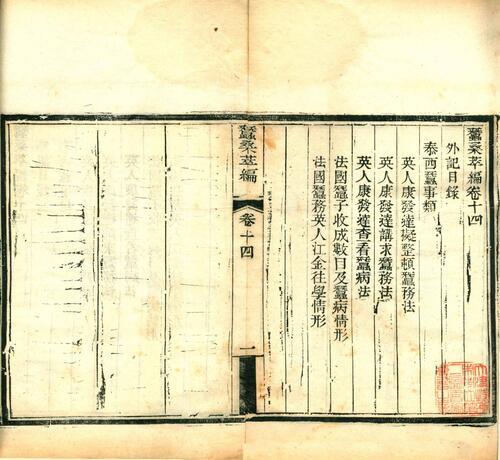 蠶桑萃編卷十四
外記目錄
泰西蠶事類
英人康發達擬整頓蠶務法
英人康發達講求蠶務法
英人康發達查看蠶病法
法國蠶子收成數目及蠶病情形
法國蠶務英人江金往學情形
蠶桑萃編
卷十四
一